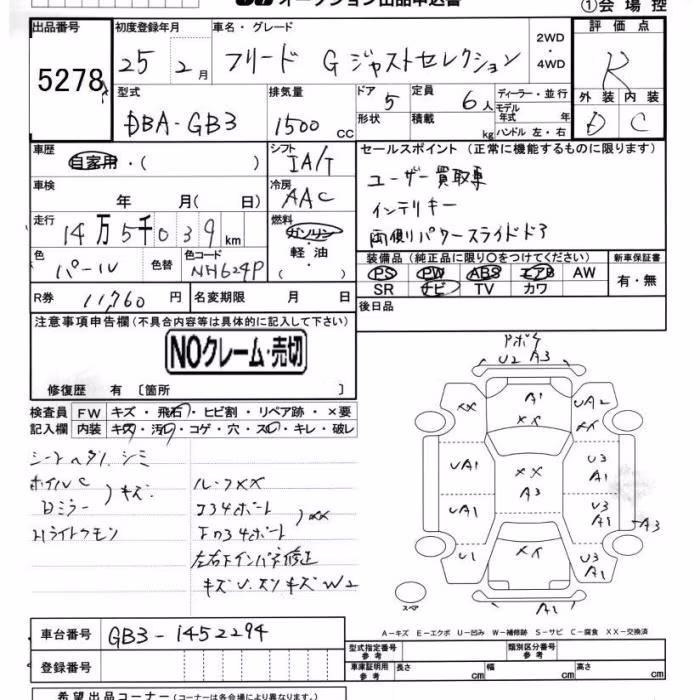 オークション出品申込書
①会場控
出品番号 初度登録年月 車名・グレード 評価点
5278 25年 2月 フリード G ジャストセレクション 2WD・4WD R
型式 排気量 ドア 5 定員 6人 ディーラー・並行 外装 内装
DBA-GB3 1500cc 形状 積載 kg モデル年式 年 ハンドル 左・右 D C
車歴 シフト セールスポイント(正常に機能するものに限ります)
自家用・( ) IA/T ユーザー買取車
車検 年 月(日) 冷房 AAC インテリキー
走行 14万5千039km 燃料 ガソリン・軽油・( ) 両側パワースライドドア
色 パール 色替 色コード NH624P 装備品(純正品に限り○をつけてください) 新車保証書
PS PW ABS エアB AW 有・無
SR ナビ TV カワ
R券 11,760円 名変期限 月 日 後日品
注意事項申告欄(不具合内容等は具体的に記入して下さい)
NOクレーム・売切
修復歴 有〔箇所 〕
検査員記入欄 FW キズ・飛石・ヒビ割・リペア跡・×要
内装 キズ・汚れ・コゲ・穴・スレ・キレ・破レ
シートヘタリ、シミ
ホイルC
Dミラー
キズ
Hライトクモン
ルーフXX
XX
左右下インパネ修正
W2
U2 A3
XX A1 UA2
XX XX
UA1 XX U3
A3 A1
UA1 U3
A1 A3
U1 XX U3
A1
スペア A1
A-キズ E-エクボ U-凹み W-補修跡 S-サビ C-腐食 XX-交換済
車台番号 GB3-1452294
型式指定番号 参考 類別区分番号 参考
登録番号
車庫証明用 参考 長さ cm 幅 cm 高さ cm
希望出品コーナー(コーナーは各会場により異なります。)